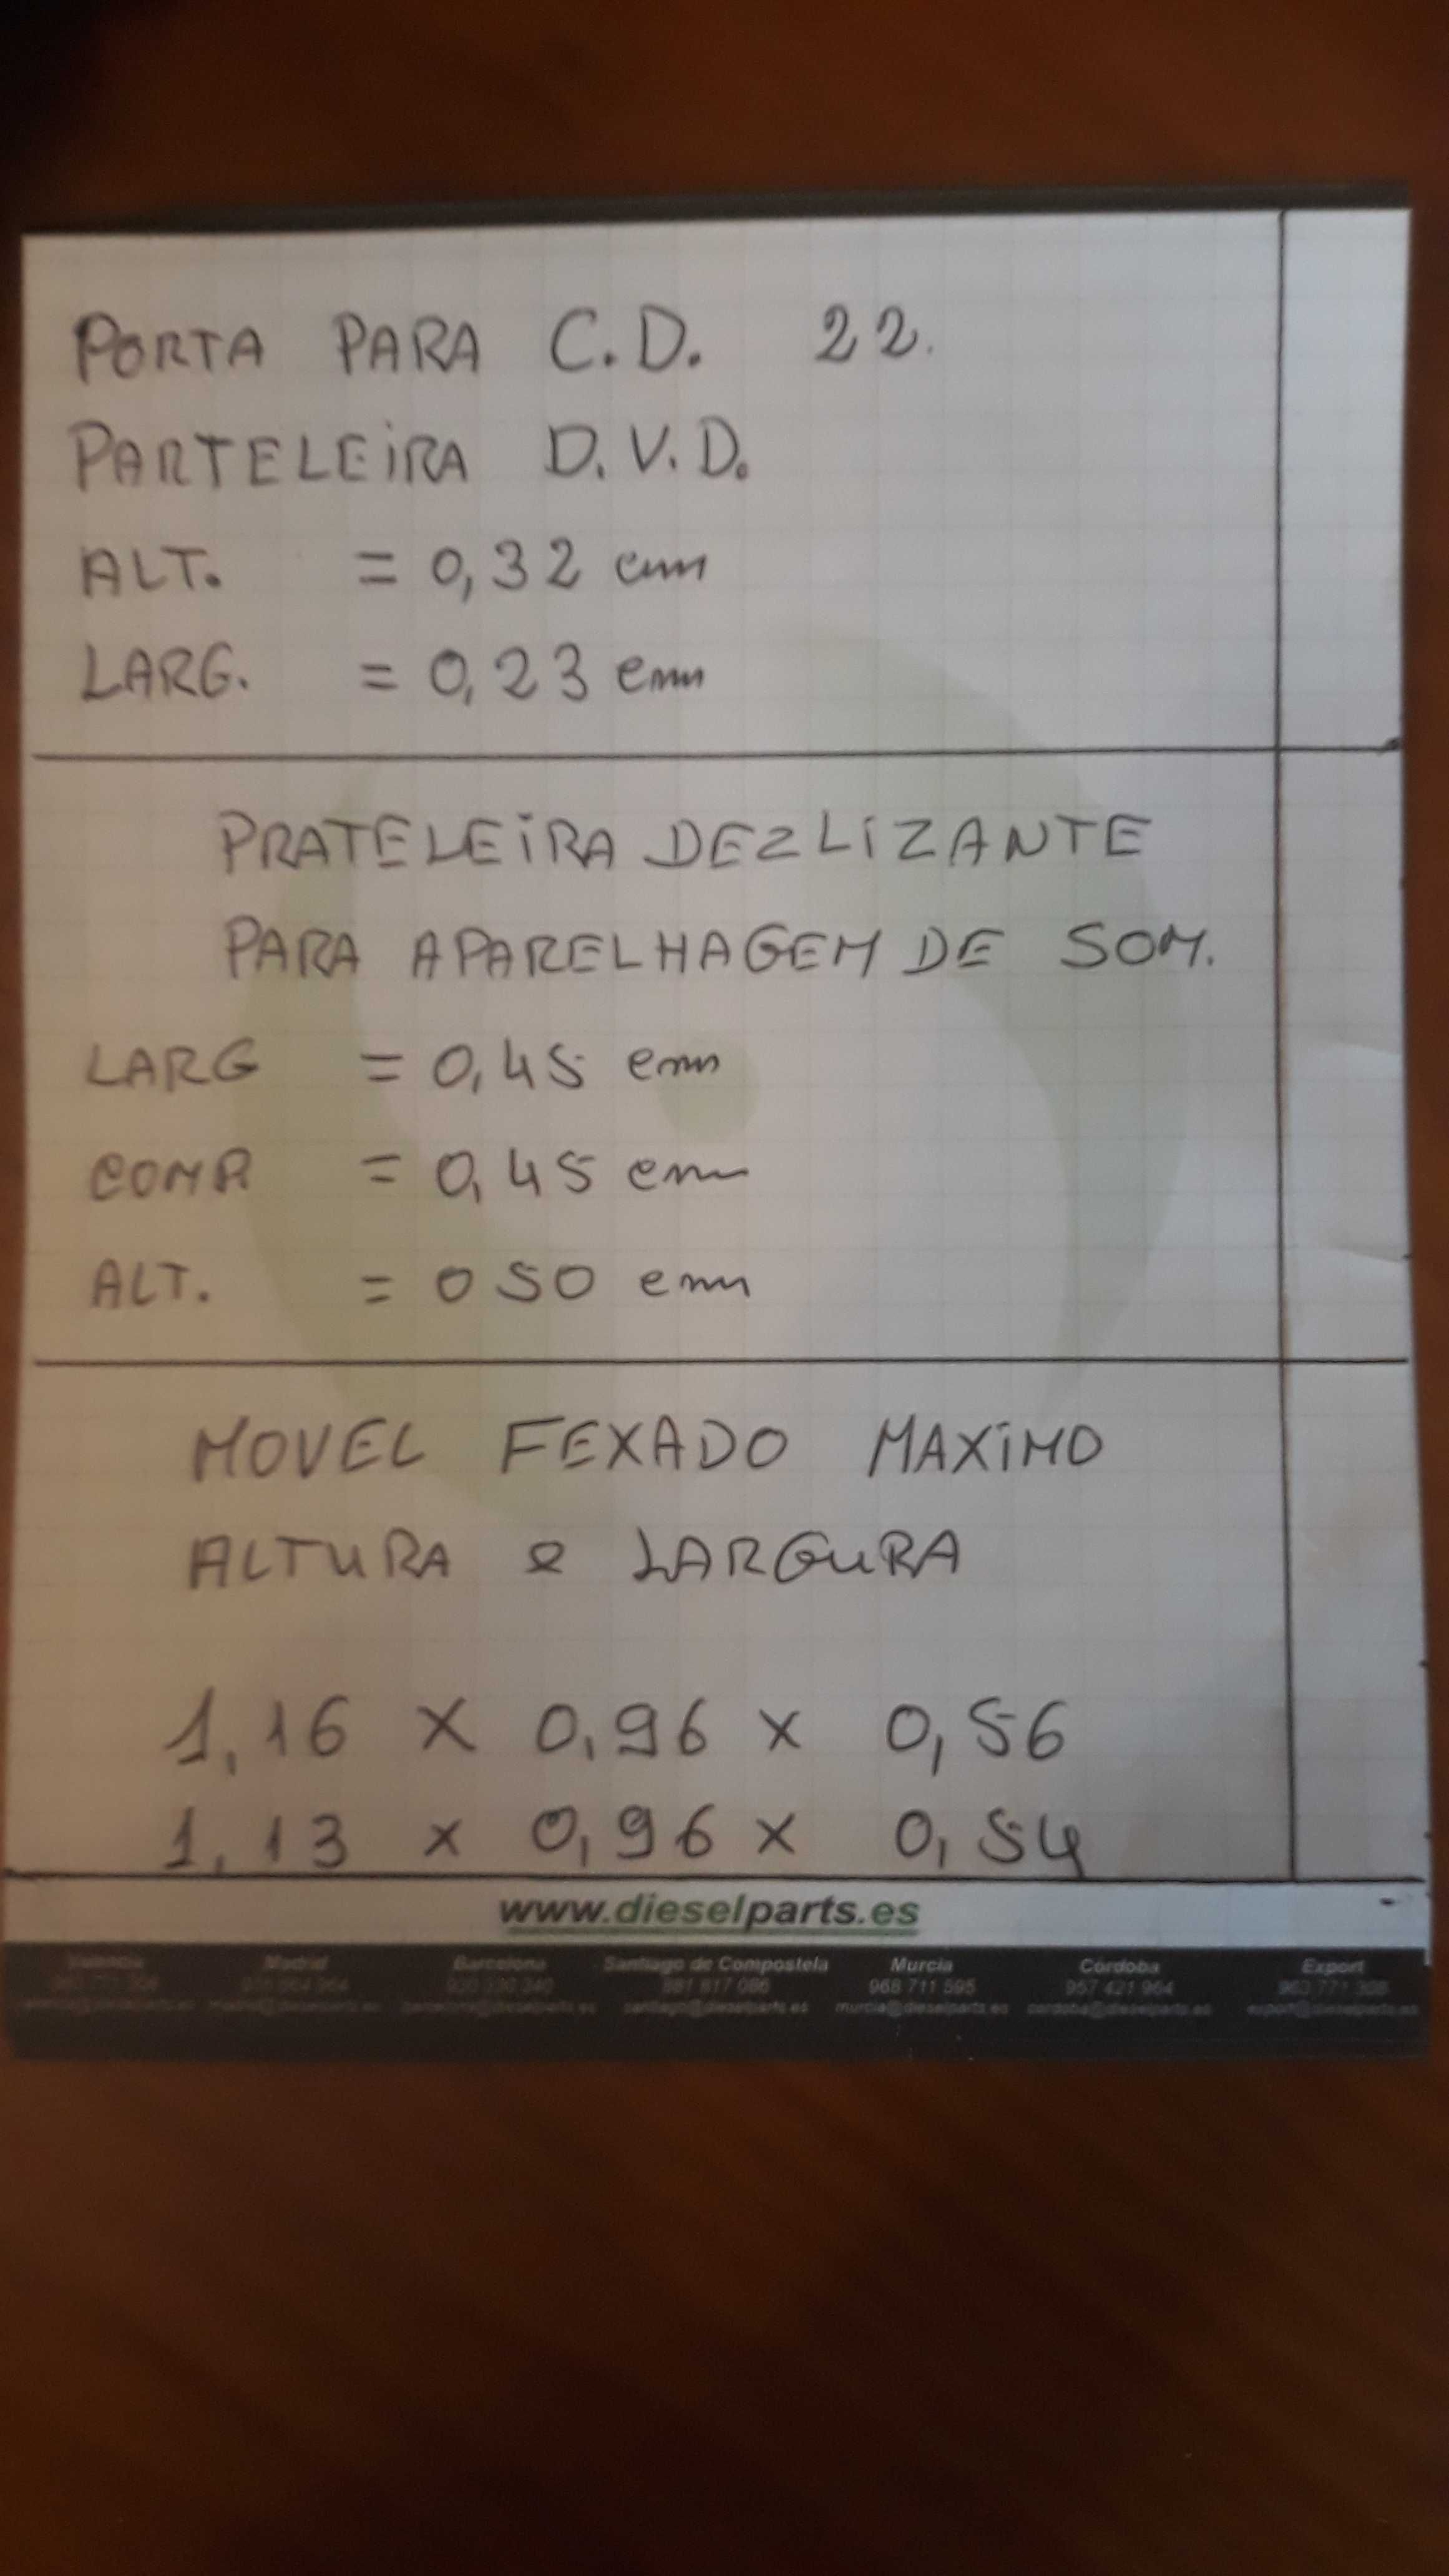 PORTA PARA C.D. 22.
PARTELEIRA D.V.D.
ALT. = 0,32 cm
LARG. = 0,23 cm
PRATELEIRA DEZLIZANTE
PARA APARELHAGEM DE SOM.
LARG = 0,45 cm
COMP = 0,45 cm
ALT. = 0 50 cm
MOVEL FEXADO MAXIMO
ALTURA e LARGURA
1,16 x 0,96 x 0,56
1,13 x 0,96 x 0,54
www.dieselparts.es
Valencia Madrid Barcelona Santiago de Compostela Murcia Córdoba Export
881 817 086 968 711 595 957 421 964
murcia@dieselparts.es cordoba@dieselparts.es